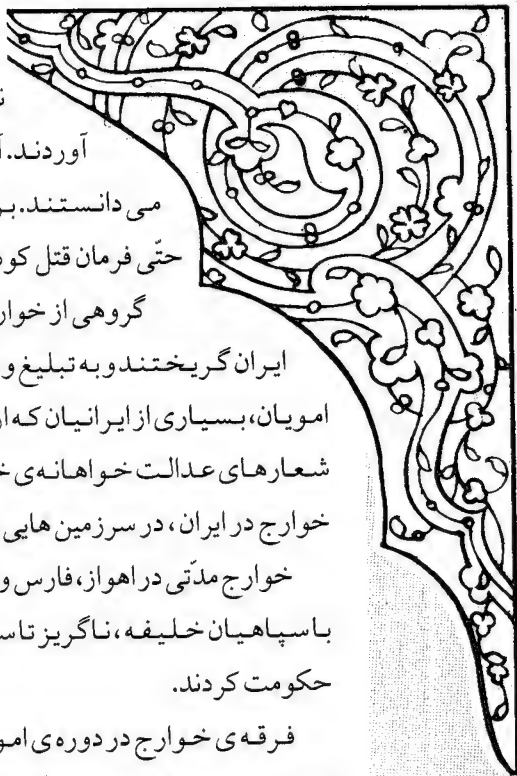 آوردند. آ
می دانستند. بر
حتّی فرمان قتل کود
گروهی از خوار
ایران گریختند و به تبلیغ و
امویان، بسیاری از ایرانیان که از
شعارهای عدالت خواهانه‌ی خ
خوارج در ایران، در سرزمین هایی
خوارج مدّتی در اهواز، فارس و
با سپاهیان خلیفه، ناگریز تا س
حکومت کردند.
فرقه‌ی خوارج در دوره‌ی امو